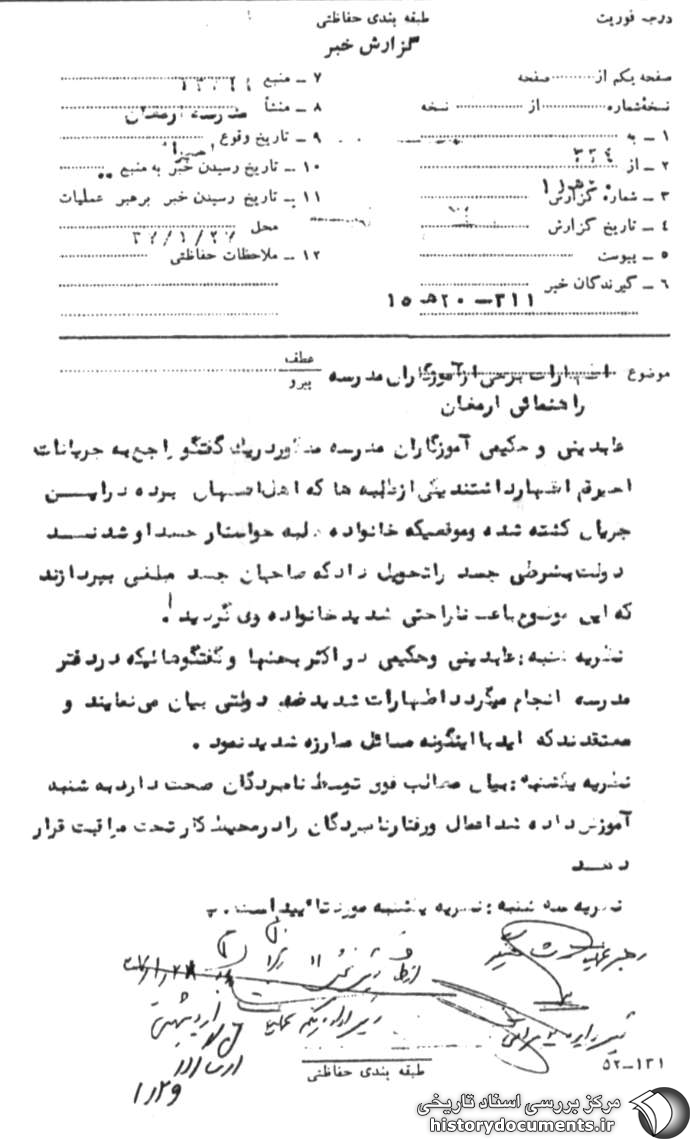 درجه فوریت
طبقه بندی حفاظتی
گزارش خبر
صفحه یکم از صفحه
نسخه شماره از نسخه
۱ ــ به
۲ ــ از
۳ ــ شماره گزارش
۴ ــ تاریخ گزارش
۵ ــ پیوست
۶ ــ گیرندگان خبر
۳۱۱ ــ ۲۰ هـ ۱۵
۷ ــ منبع
۸ ــ منشأ مدرسه ارمغان
۹ ــ تاریخ وقوع اخیراً
۱۰ ــ تاریخ رسیدن خبر به منبع
۱۱ ــ تاریخ رسیدن خبر برهبر عملیات
محل
۱۲ ــ ملاحظات حفاظتی
موضوع اظهارات برخی از آموزگاران مدرسه
عطف
پیرو
راهنمائی ارمغان
عابدینی و حکیمی آموزگاران مدرسه مذکور در یک گفتگو راجع به جریانات
اخیر قم اظهار داشتند یکی از طلبه ها که اهل اصفهان بوده در این
جریان کشته شده وموقعیکه خانواده طلبه خواستار جسد او شدند
دولت بشرطی جسد را تحویل داد که صاحبان جسد مبلغی بپردازند
که این موضوع باعث ناراحتی شدید خانواده وی گردید.
نظریه شنبه : عابدینی وحکیمی در اکثر بحثها وگفتگوهائیکه در دفتر
مدرسه انجام میگردد اظهارات شدید ضد دولتی بیان می نمایند و
معتقدند که باید با اینگونه مسائل مبارزه شدید نمود .
نظریه یکشنبه : بیان مطالب فوق توسط نامبردگان صحت دارد به شنبه
آموزش داده شد اعمال ورفتار نامبردگان را در محیط کار تحت مراقبت قرار
دهد
نظریه سه شنبه : نظریه یکشنبه مورد تائید است .
رهبر عملیات
رئیس اداره یکم عملیات
۱/۲۹
۵۲ــ۱۳۱
طبقه بندی حفاظتی
مرکز بررسی اسناد تاریخی
historydocuments.ir